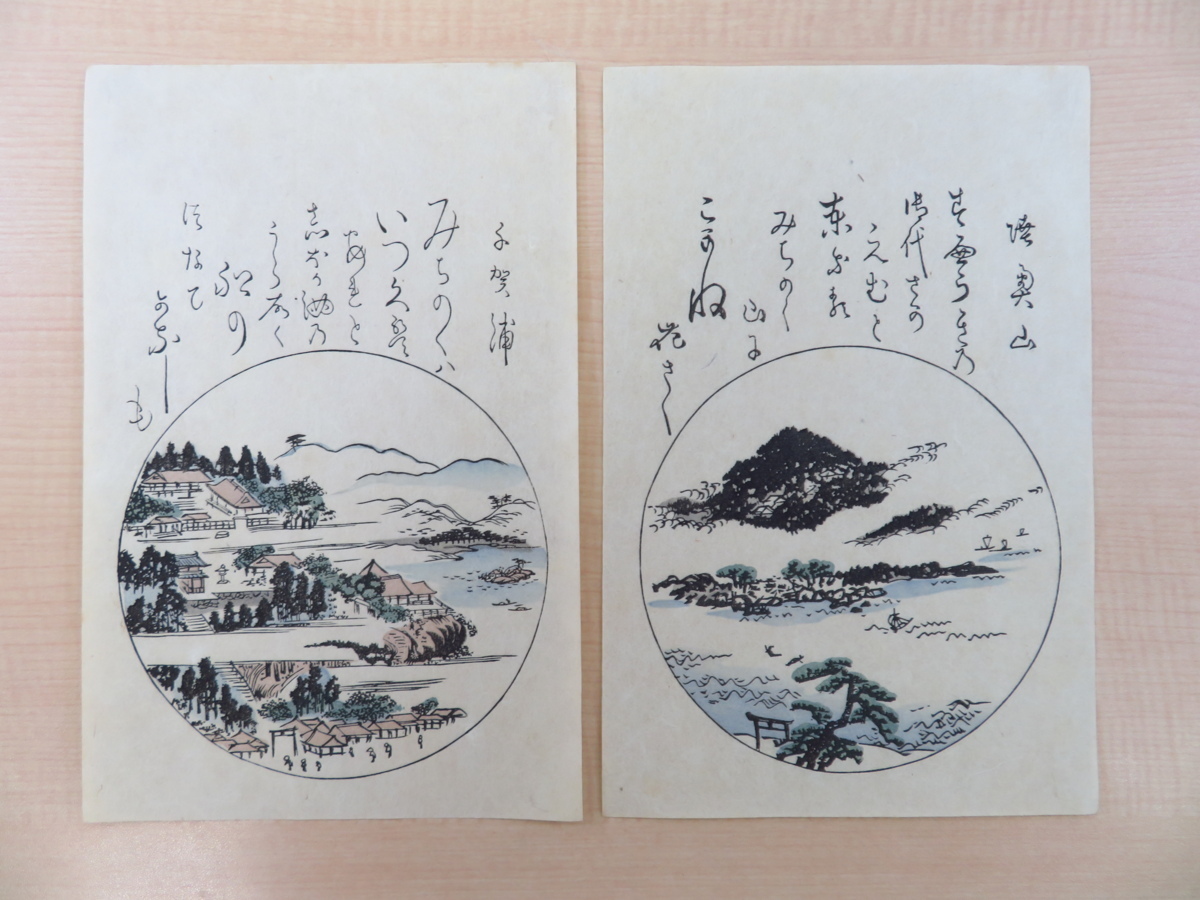 陸奥山
すめろきの
御代さかの
えむと
東なる
みちのく
山に
こかね
花さく
千賀浦
みちのくハ
いつくハ
あれと
しほか満乃
うらこく
船の
つなて
かなし
も